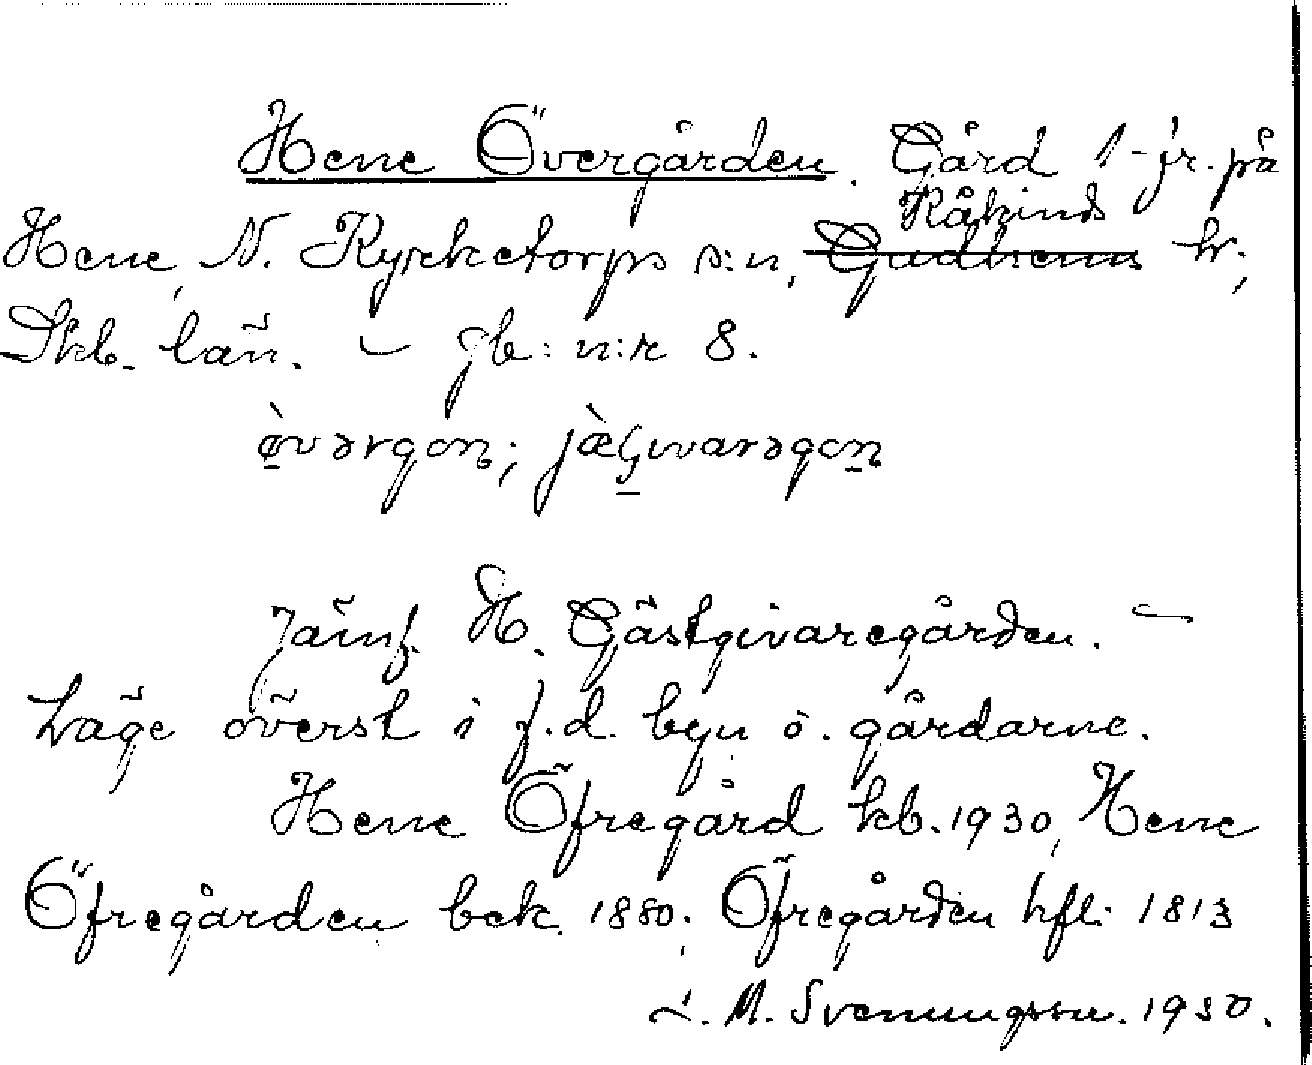 Hene Övergården. Gård 1-jr. på
Kåkinds
Hene, N. Kyrketorps s:n, Gudhems hr,
Skb. län. – jb: n:r 8.
Jämf. H. Gästgivaregården. –
Läge överst i f.d. byn ö. gårdarne.
Hene Öfregård kb. 1930, Hene
Öfregården bek. 1880; Öfregården hfl. 1813
L. M. Svenungsson. 1930.